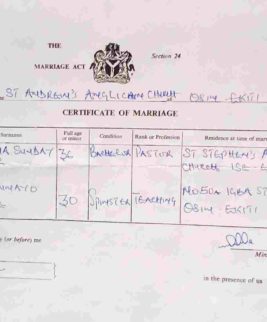 THE
Section 24
MARRIAGE ACT
ST ANDREW'S ANGLICAN CHURCH OSIN - EKITI
CERTIFICATE OF MARRIAGE
Surname Full age or minor Condition Rank or Profession Residence at time of marr
SUNDAY 36 BACHELOR PASTOR ST STEPHEN'S A
CHURCH ISE - E
30 SPINSTER TEACHING ST
OSIN - EKITI
(or before) me
Min
in the presence of us